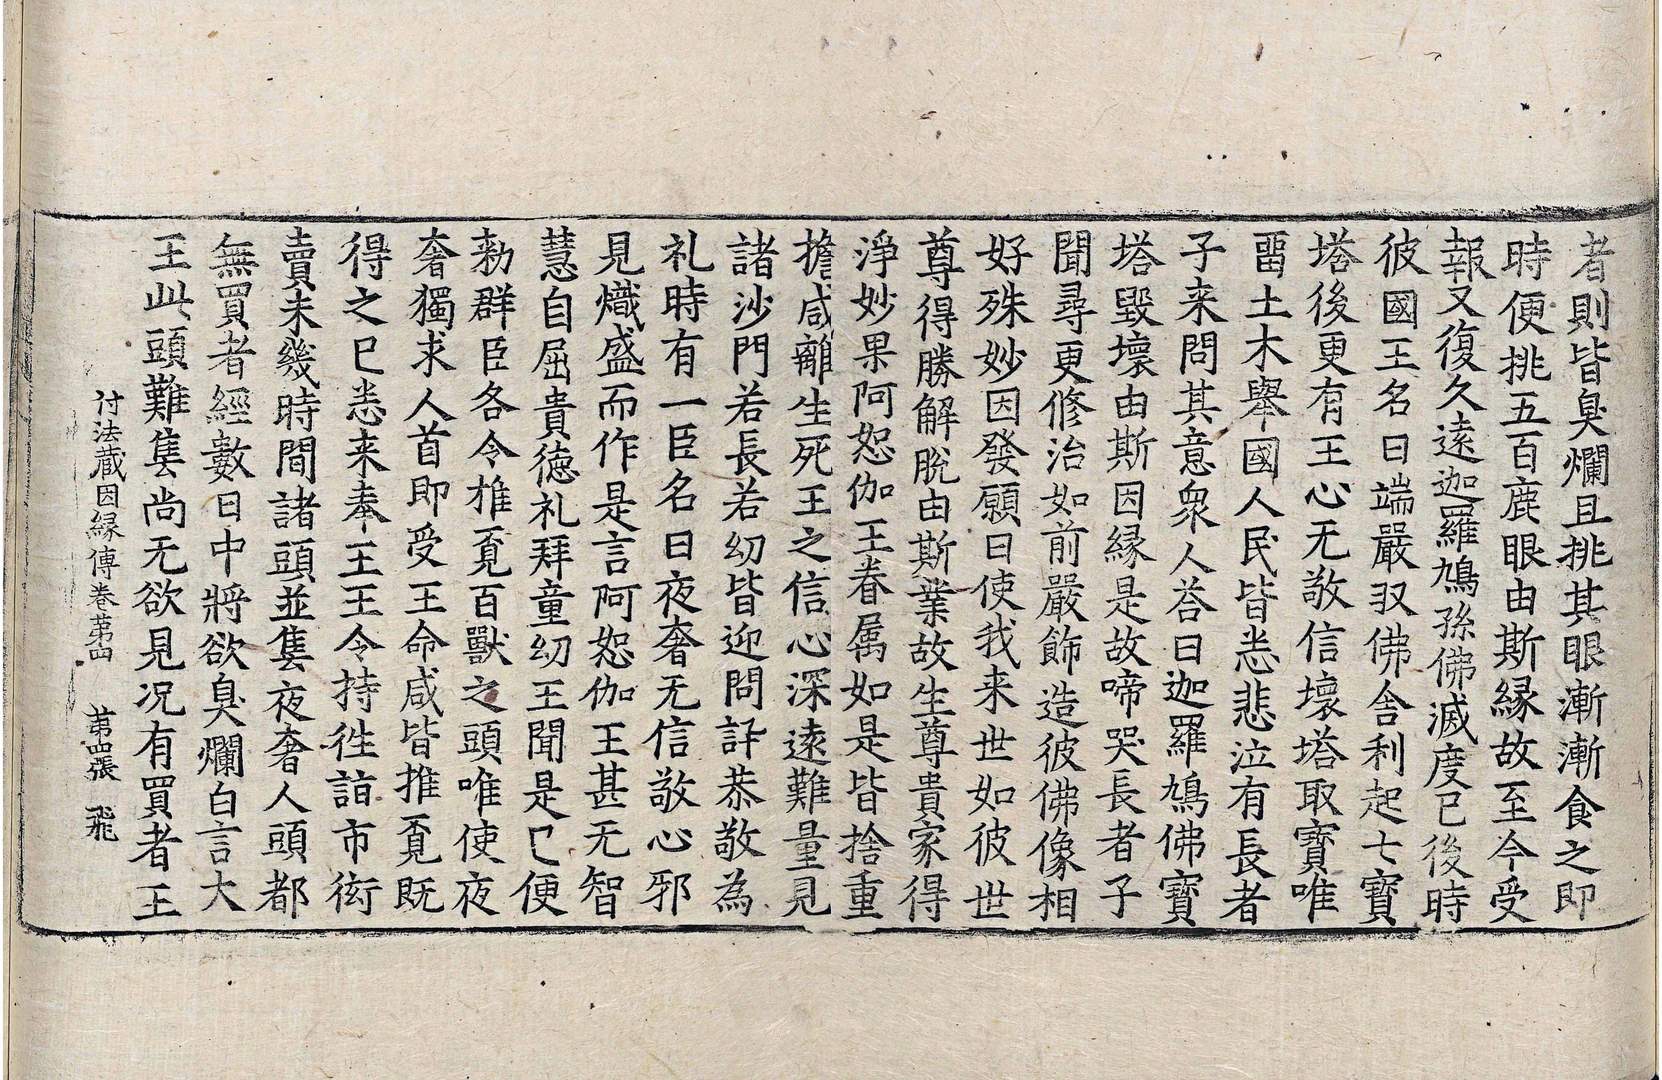 者則皆臭爛且挑其眼漸漸食之即
時便挑五百鹿眼由斯縁故至今受
報又復久遠迦羅鳩孫佛滅度已後時
彼國王名曰端嚴収佛舍利起七寶
塔後更有王心无敬信壞塔取寳唯
畱土木舉國人民皆悉悲泣有長者
子来問其意衆人荅曰迦羅鳩佛寶
塔毀壞由斯因縁是故啼哭長者子
聞尋更修治如前嚴飾造彼佛像相
好殊妙因發願曰使我来世如彼世
尊得勝解脫由斯業故生尊貴家得
淨妙果阿恕伽王眷属如是皆捨重
擔咸離生死王之信心深遠難量見
諸沙門若長若㓜皆迎問訊恭敬為
礼時有一臣名曰夜奢无信敬心邪
見熾盛而作是言阿恕伽王甚无智
慧自屈貴德礼拜童㓜王聞是已便
勑群臣各令推覓百獸之頭唯使夜
奢獨求人首即受王命咸皆推覓既
得之已悉来奉王王令持徃詣市衒
賣未幾時間諸頭並售夜奢人頭都
無買者經數日中將欲臭爛白言大
王此頭難售尚无欲見况有買者王
付法藏因縁傳卷苐四　苐四張　飛